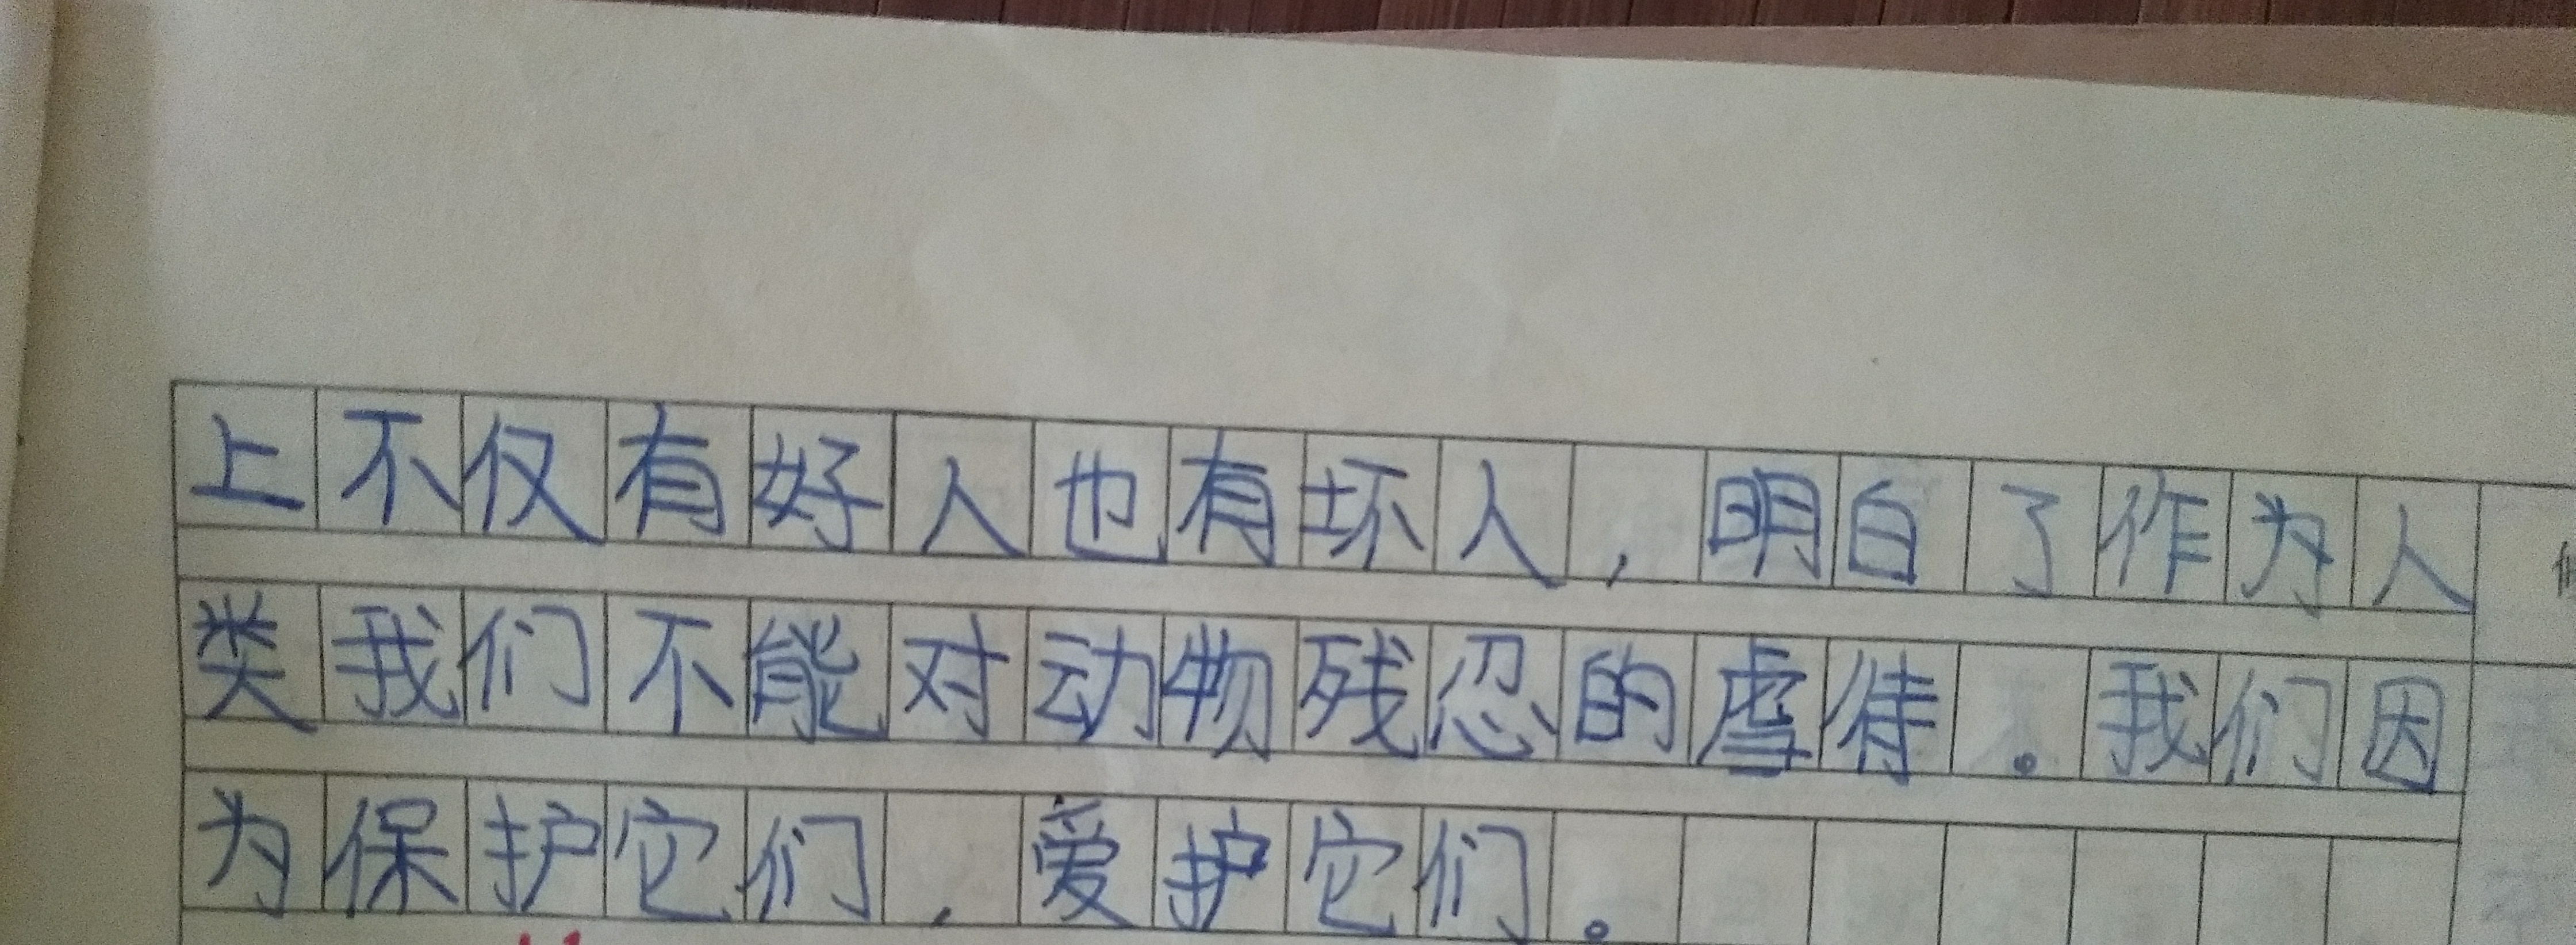 上不仅有好人也有坏人，明白了作为人
类我们不能对动物残忍的虐待。我们因
为保护它们，爱护它们。